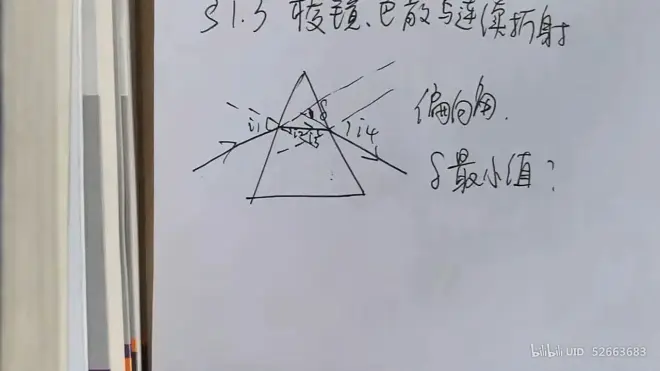 §1.3 棱镜、色散与连续折射
δ
i1
i2
i3
i4
偏向角.
δ最小值?
bilibili UID 52663683